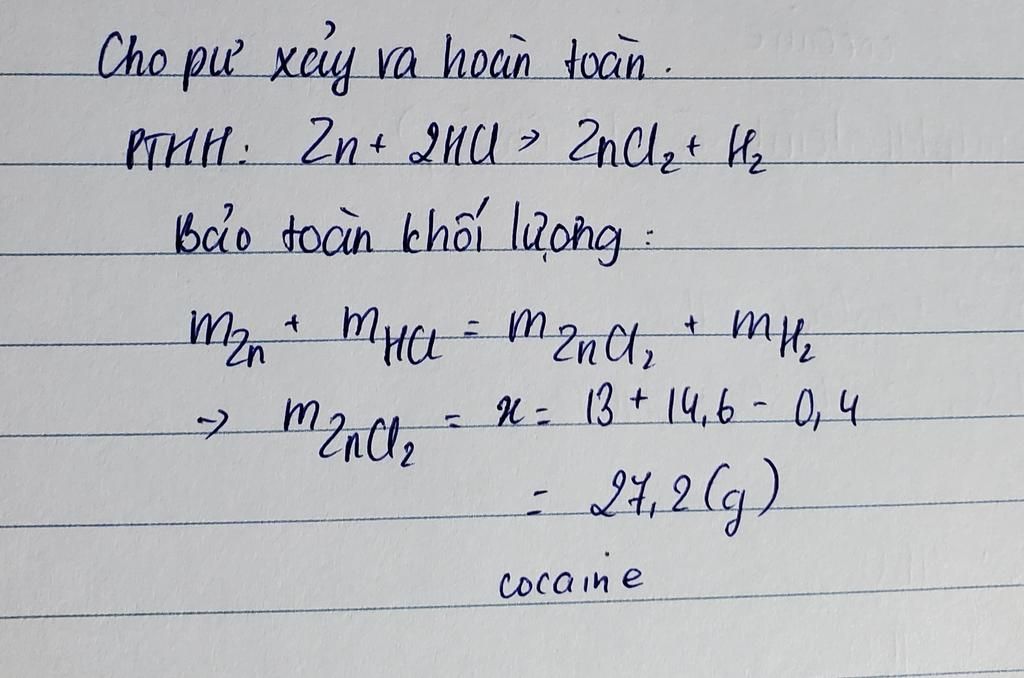 Cho pư xảy ra hoàn toàn.
PTHH: Zn + 2HCl → ZnCl₂ + H₂
Bảo toàn khối lượng:
m_Zn + m_HCl = m_ZnCl₂ + m_H₂
→ m_ZnCl₂ = x = 13 + 14,6 - 0,4
= 27,2 (g)
cocaine